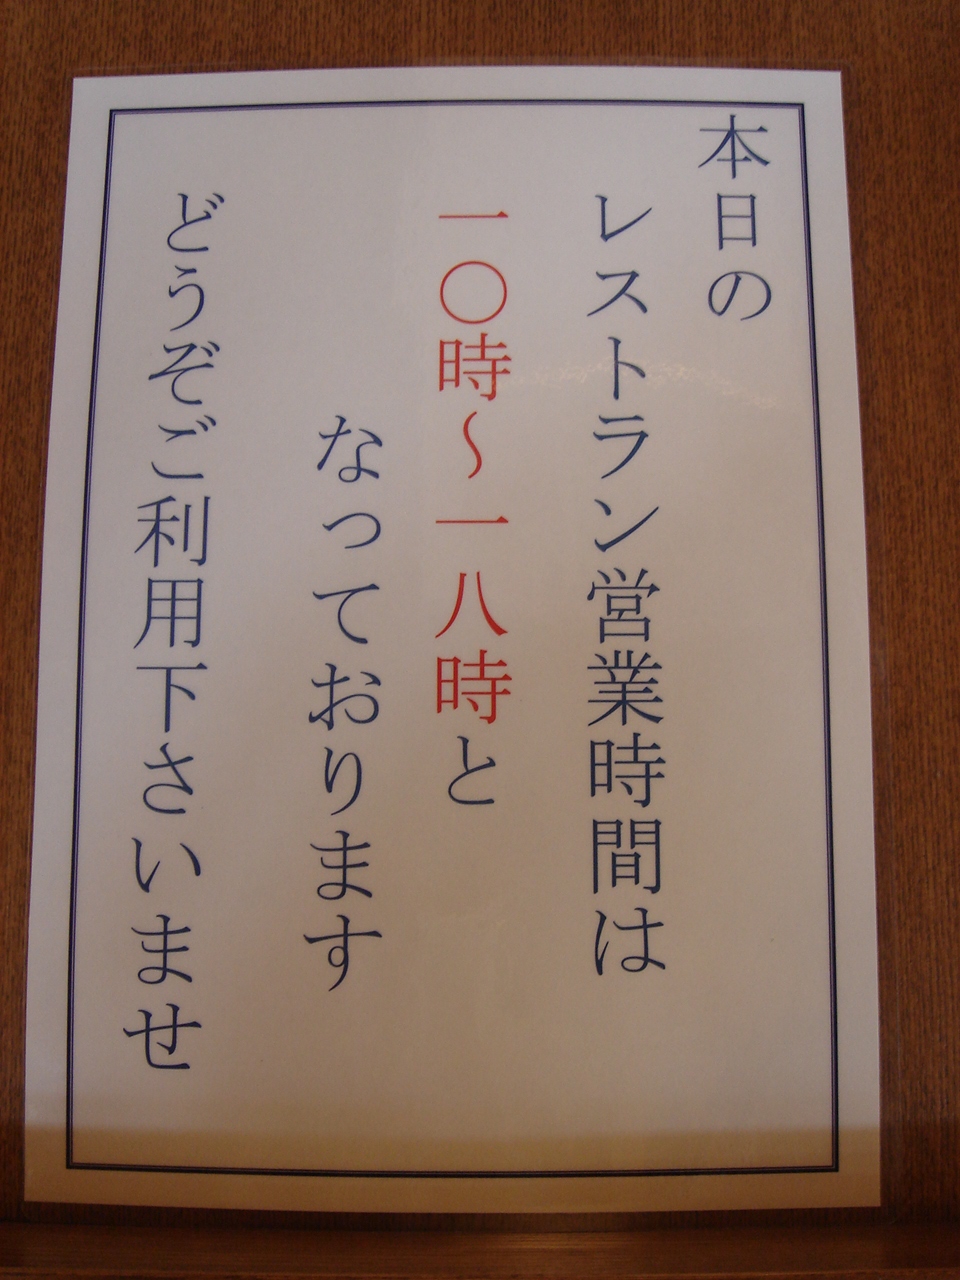 本日の
レストラン営業時間は
一〇時〜一八時と
なっております
どうぞご利用下さいませ